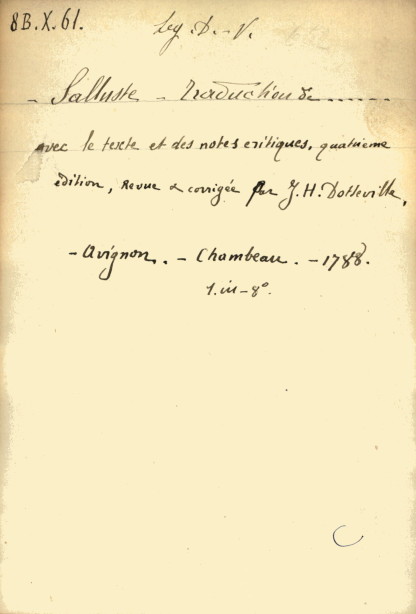 8B.X.61.
Leg. D. - V.
- Salluste - Traduction de ........
avec le texte et des notes critiques, quatrieme
édition, Revue & corrigée par J.H. Dotteville,
- Avignon. - Chambeau. - 1788.
1. in - 8°.